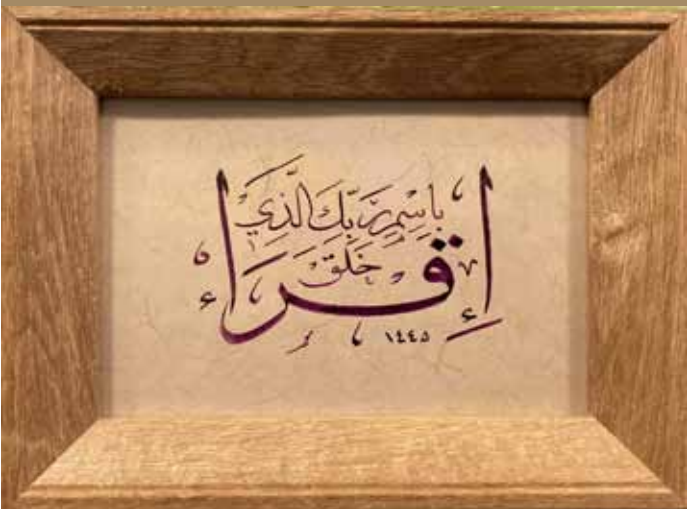 إِقْرَأْ
بِاسْمِ رَبِّكَ الَّذِي
خَلَقَ
١٤٤٥